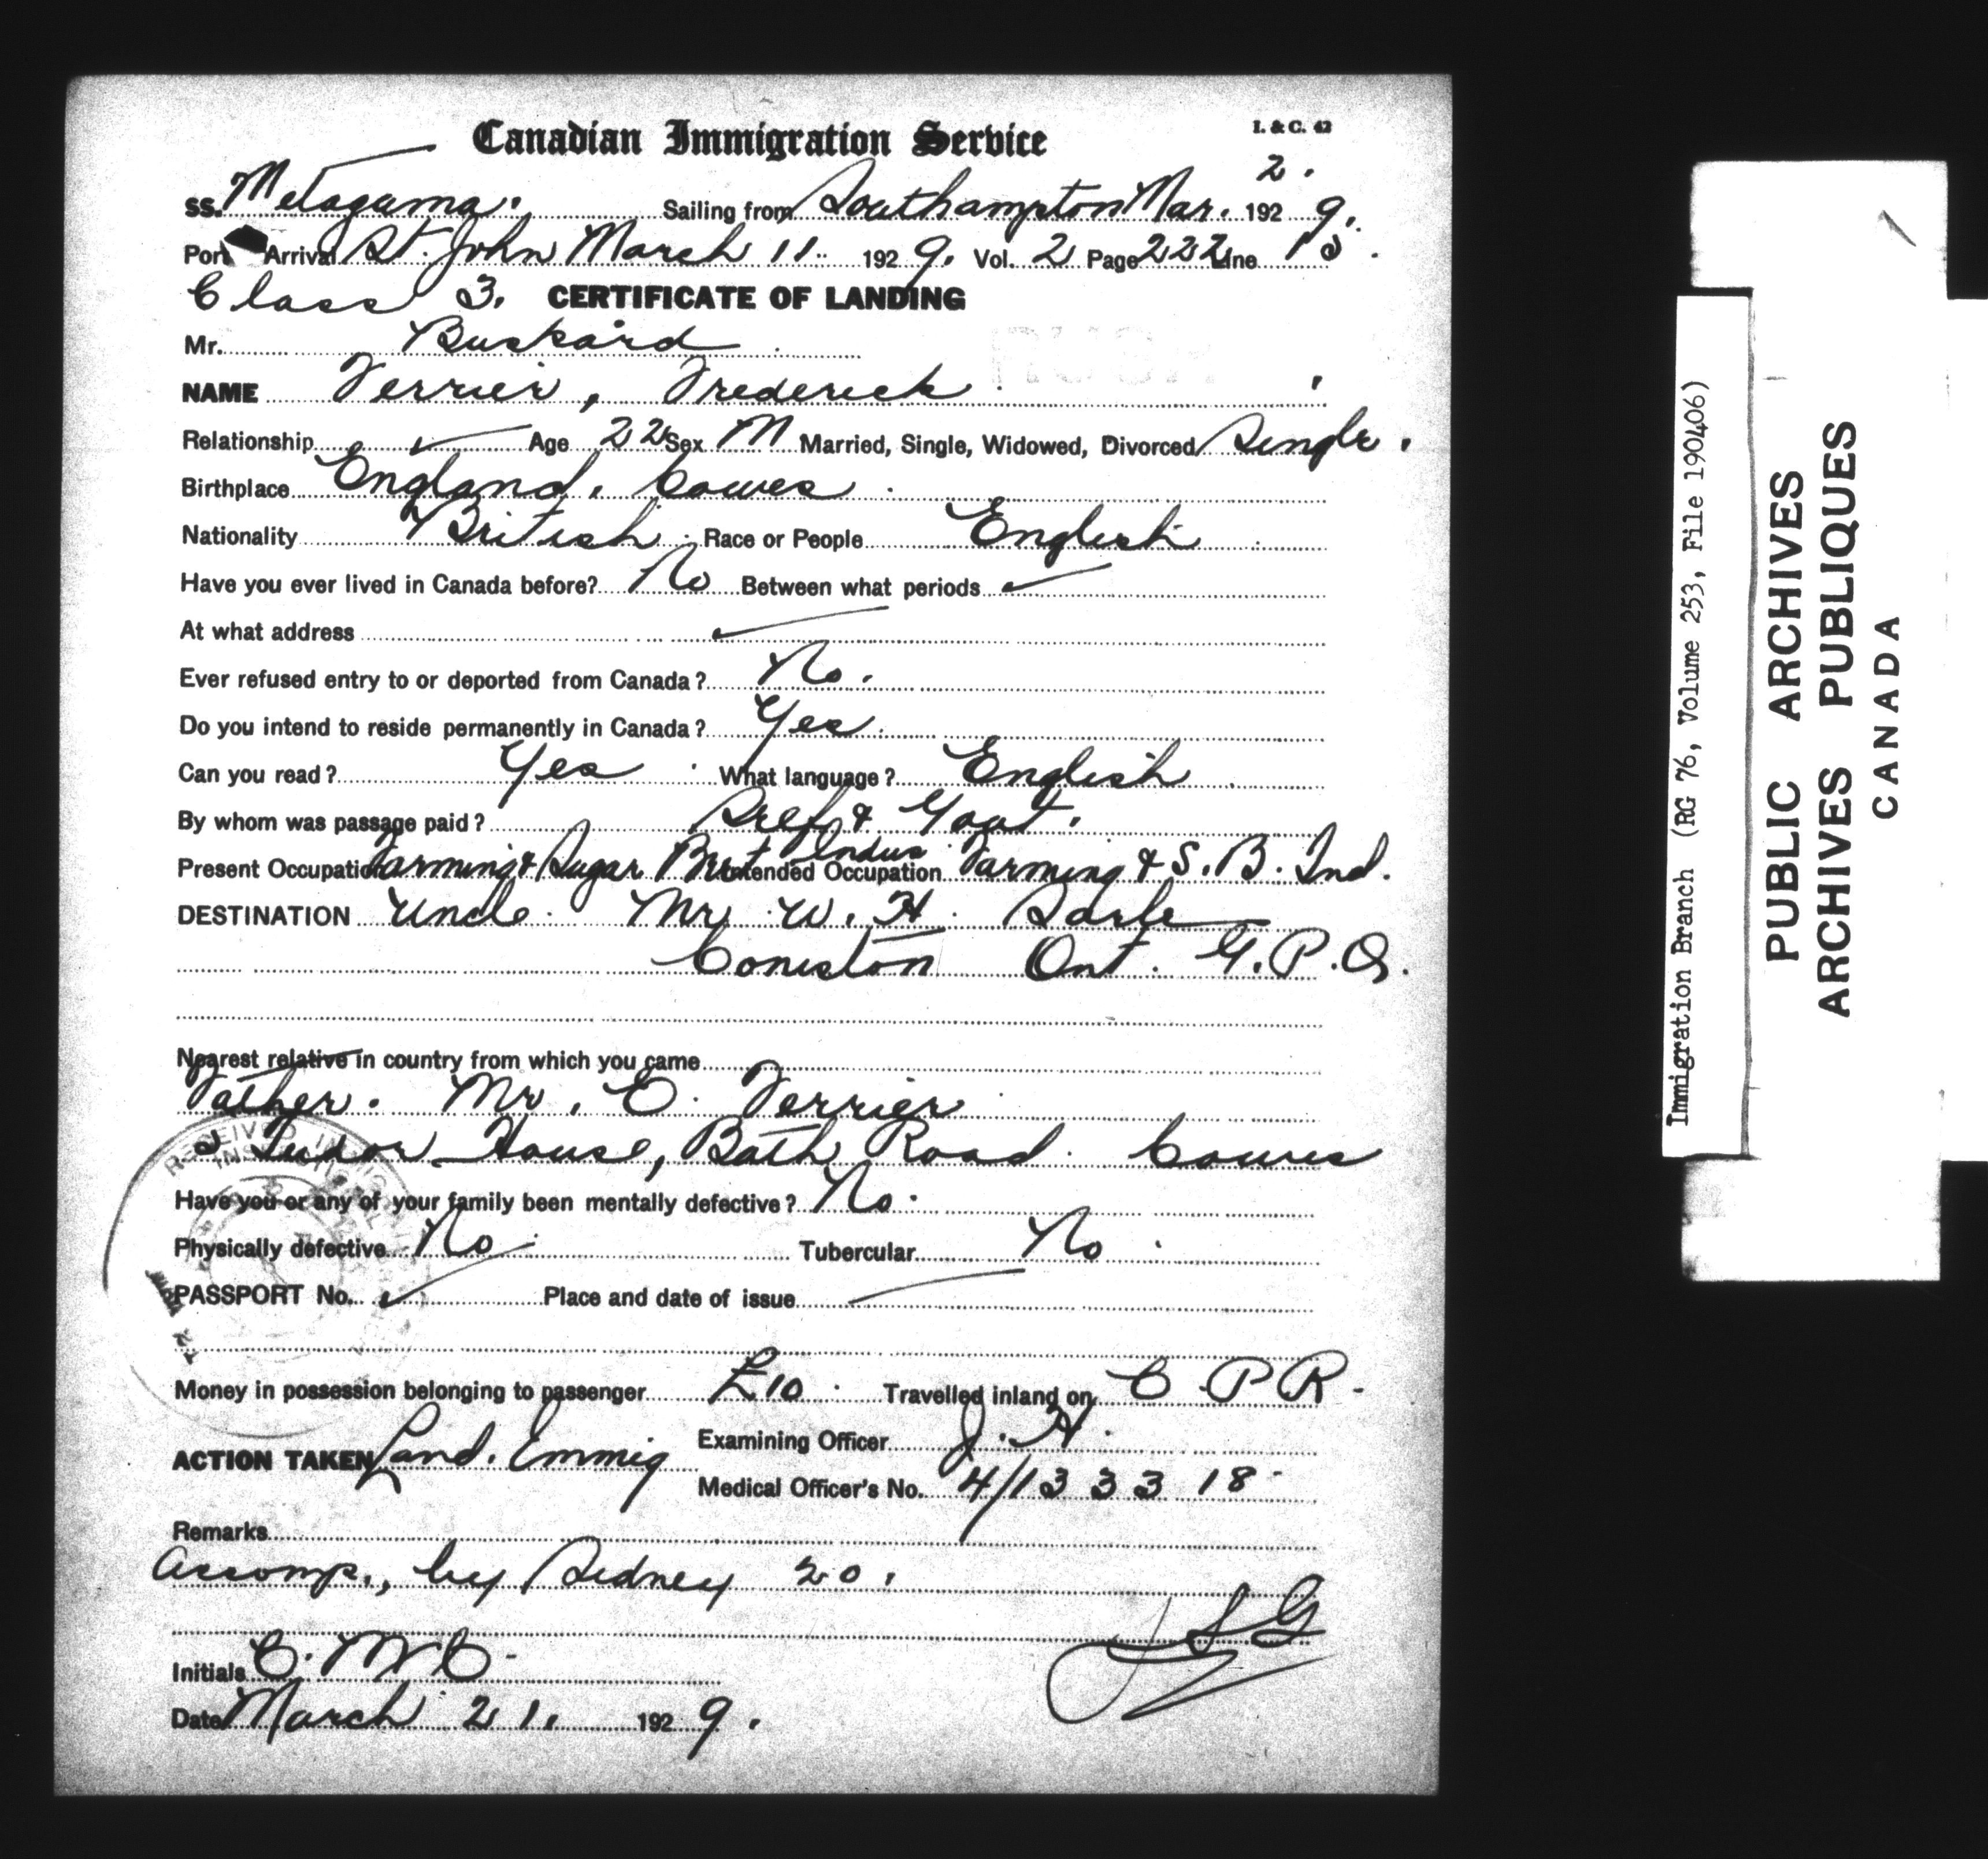 Canadian Immigration Service
I. & C. 42
SS. Metagama. Sailing from Southampton Mar. 2. 1929.
Port Arrival St. John March 11. 1929. Vol. 2 Page 222 Line 15.
Class 3. CERTIFICATE OF LANDING
Mr. Buskard
NAME Ferrier, Frederick
Relationship Age 22 Sex M Married, Single, Widowed, Divorced Single.
Birthplace England. Cowes
Nationality British Race or People English
Have you ever lived in Canada before? No Between what periods
At what address
Ever refused entry to or deported from Canada? No.
Do you intend to reside permanently in Canada? Yes
Can you read? Yes What language? English
By whom was passage paid? Self & Govt.
Present Occupation Farming & Sugar Beet Indus Intended Occupation Farming & S. B. Ind.
DESTINATION Uncle Mr W. H.
Coniston Ont. G. P. O.
Nearest relative in country from which you came
Father. Mr. E. Ferrier
Tudor House, Bath Road. Cowes
Have you or any of your family been mentally defective? No.
Physically defective No Tubercular No
PASSPORT No. Place and date of issue
Money in possession belonging to passenger £10 Travelled inland on C P R.
ACTION TAKEN Land. Immig Examining Officer J. H.
Medical Officer's No. 4/13 3 3 18
Remarks
accomp., by Sidney 20.
Initials C. M C.
Date March 21. 1929.
Immigration Branch (RG 76, Volume 253, File 190406)
PUBLIC ARCHIVES
ARCHIVES PUBLIQUES
CANADA